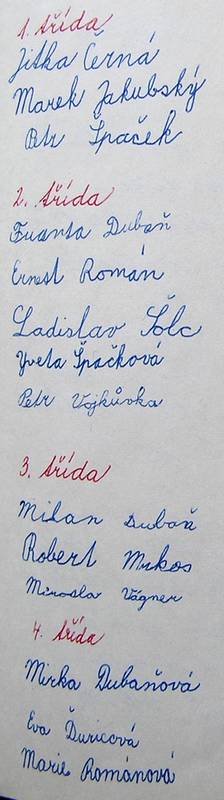 1. třída
Jitka Černá
Marek Jakubský
Petr Špaček
2. třída
Franta Dubaň
Ernest Román
Ladislav Šolc
Yveta Špačková
Petr Vojkůvka
3. třída
Milan Dubaň
Robert Mrkos
Mirosla Vágner
4. třída
Mirka Dubaňová
Eva Ďuricová
Marie Románová